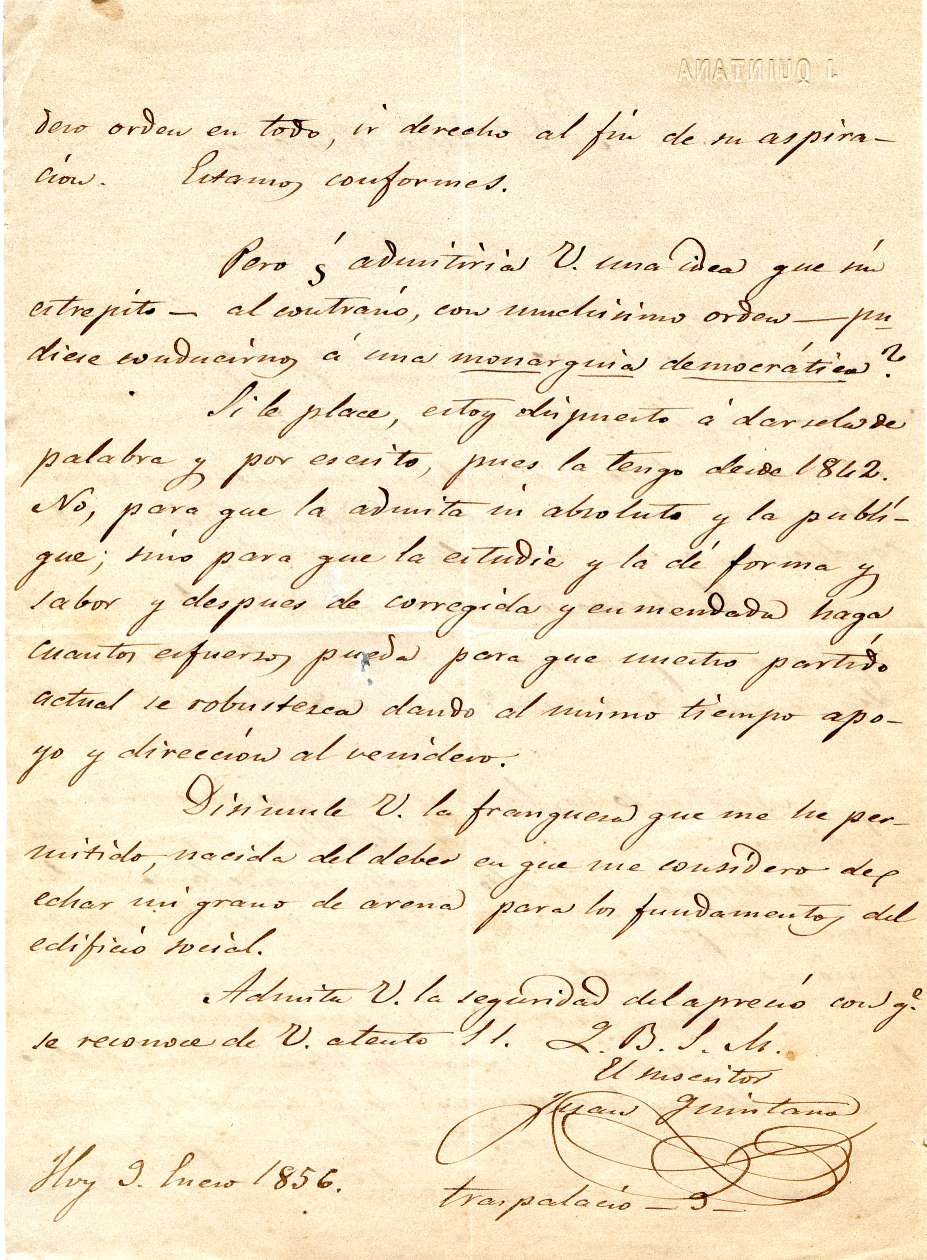 J QUINTANA
dero orden en todo, ir derecho al fin de su aspira–
ción. Estamos conformes.
Pero ¿ admitiria V. una idea que sin
estrepito — al contrario, con muchisimo orden — pu
diese conducirnos á una monarquia democrática?
Si le place, estoy dispuesto á darsela de
palabra y por escrito, pues la tengo desde 1842.
No, para que la admita in absoluto y la publi–
que; sino para que la estudie y la dé forma y
sabor y despues de corregida y enmendada haga
cuantos esfuersos pueda para que nuestro partido
actual se robustesca dando al mismo tiempo apo–
yo y dirección al venidero.
Disimule V. la franquesa que me he per–
mitido, nacida del deber en que me considero de
echar mi grano de arena para los fundamentos del
edificio social.
Admita V. la seguridad del aprecio con q.e
se reconoce de V. atento SS. Q. B. S. M.
El suscritor
Juan Quintana
Hoy 9. Enero 1856.
traspalacio – 9 –